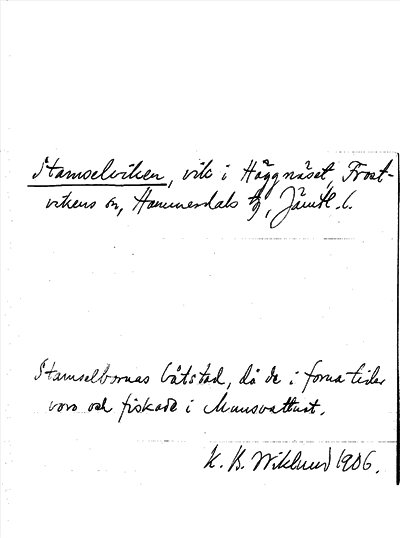 Stamselviken, vik i Häggnäset, Frost-
vikens sn, Hammerdals tg, Jämtl. l.
Stamselbornas båtstad, då de i forna tider
voro och fiskade i Munsvattnet.
K. B. Wiklund 1906.